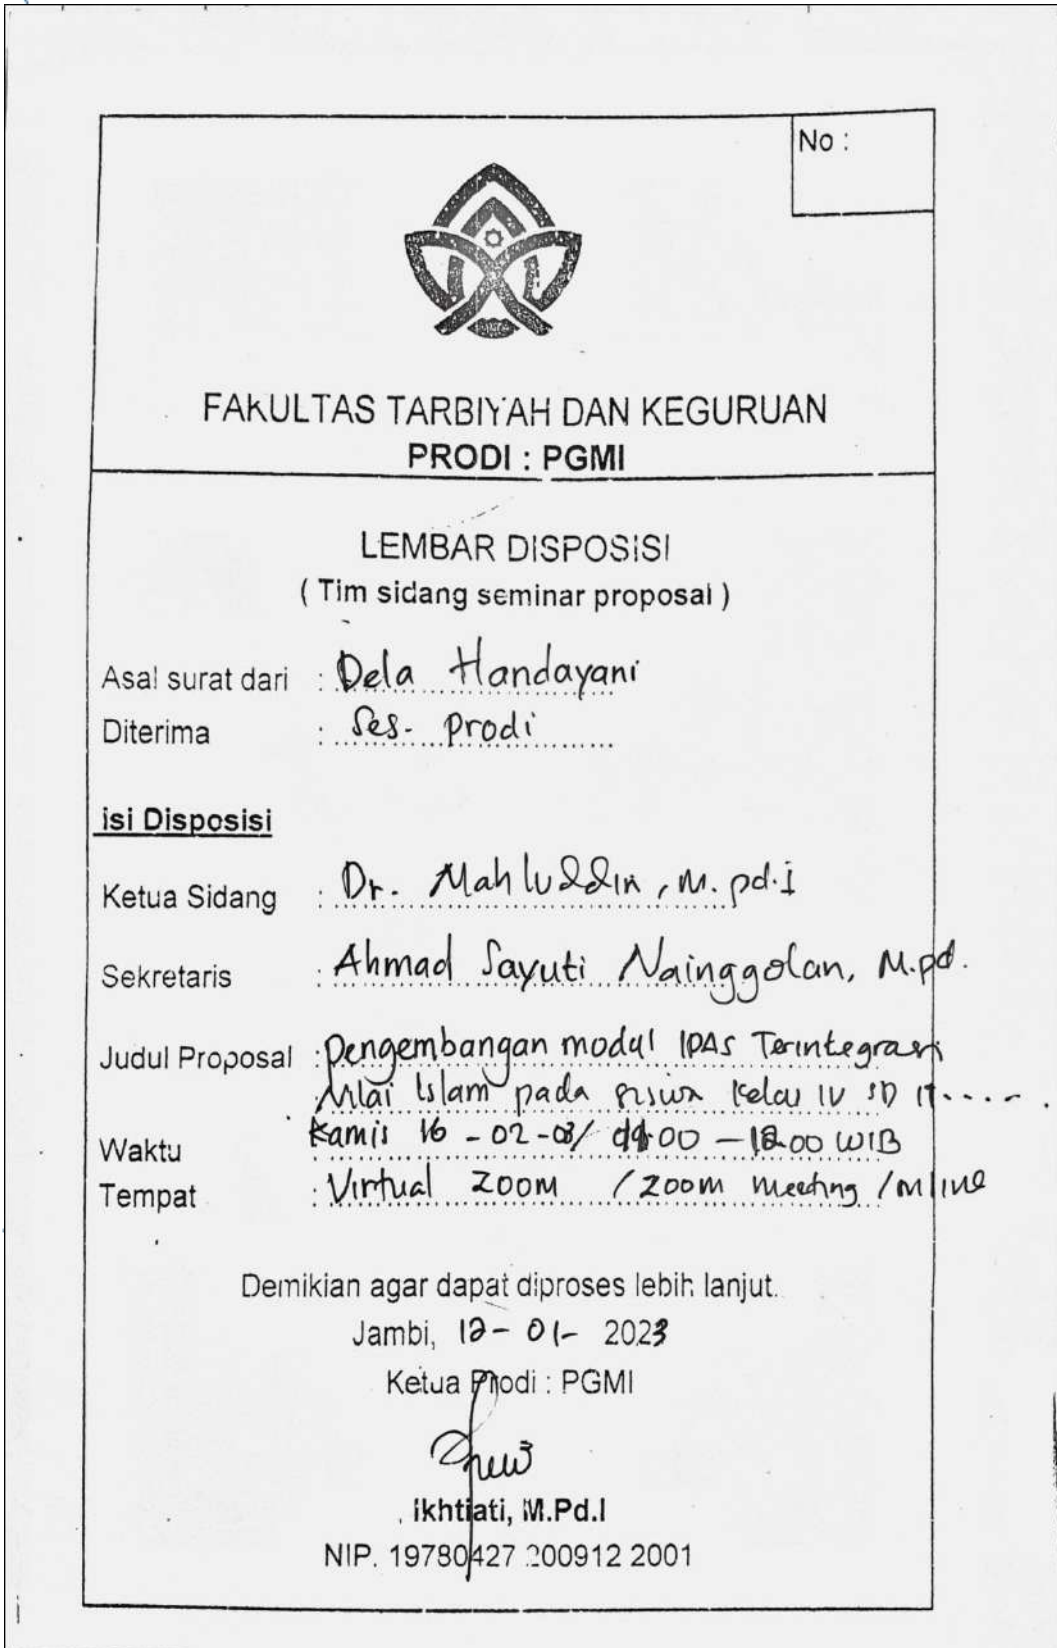 No :
FAKULTAS TARBIYAH DAN KEGURUAN
PRODI : PGMI
LEMBAR DISPOSISI
( Tim sidang seminar proposal )
Asal surat dari : Dela Handayani
Diterima : Ses. Prodi
isi Disposisi
Ketua Sidang : Dr. Mahluddin, M.pd.I
Sekretaris : Ahmad Sayuti Nainggolan, M.pd.
Judul Proposal : Pengembangan modul IPAS Terintegrasi
Nilai Islam pada siswa kelas IV SD IT.....
Waktu Kamis 16 - 02 - WIB
Tempat : Virtual Zoom / Zoom meeting / online
Demikian agar dapat diproses lebih lanjut.
Jambi, 12 - 01 - 2023
Ketua Prodi : PGMI
Ikhtiati, M.Pd.I
NIP. 19780427 200912 2001